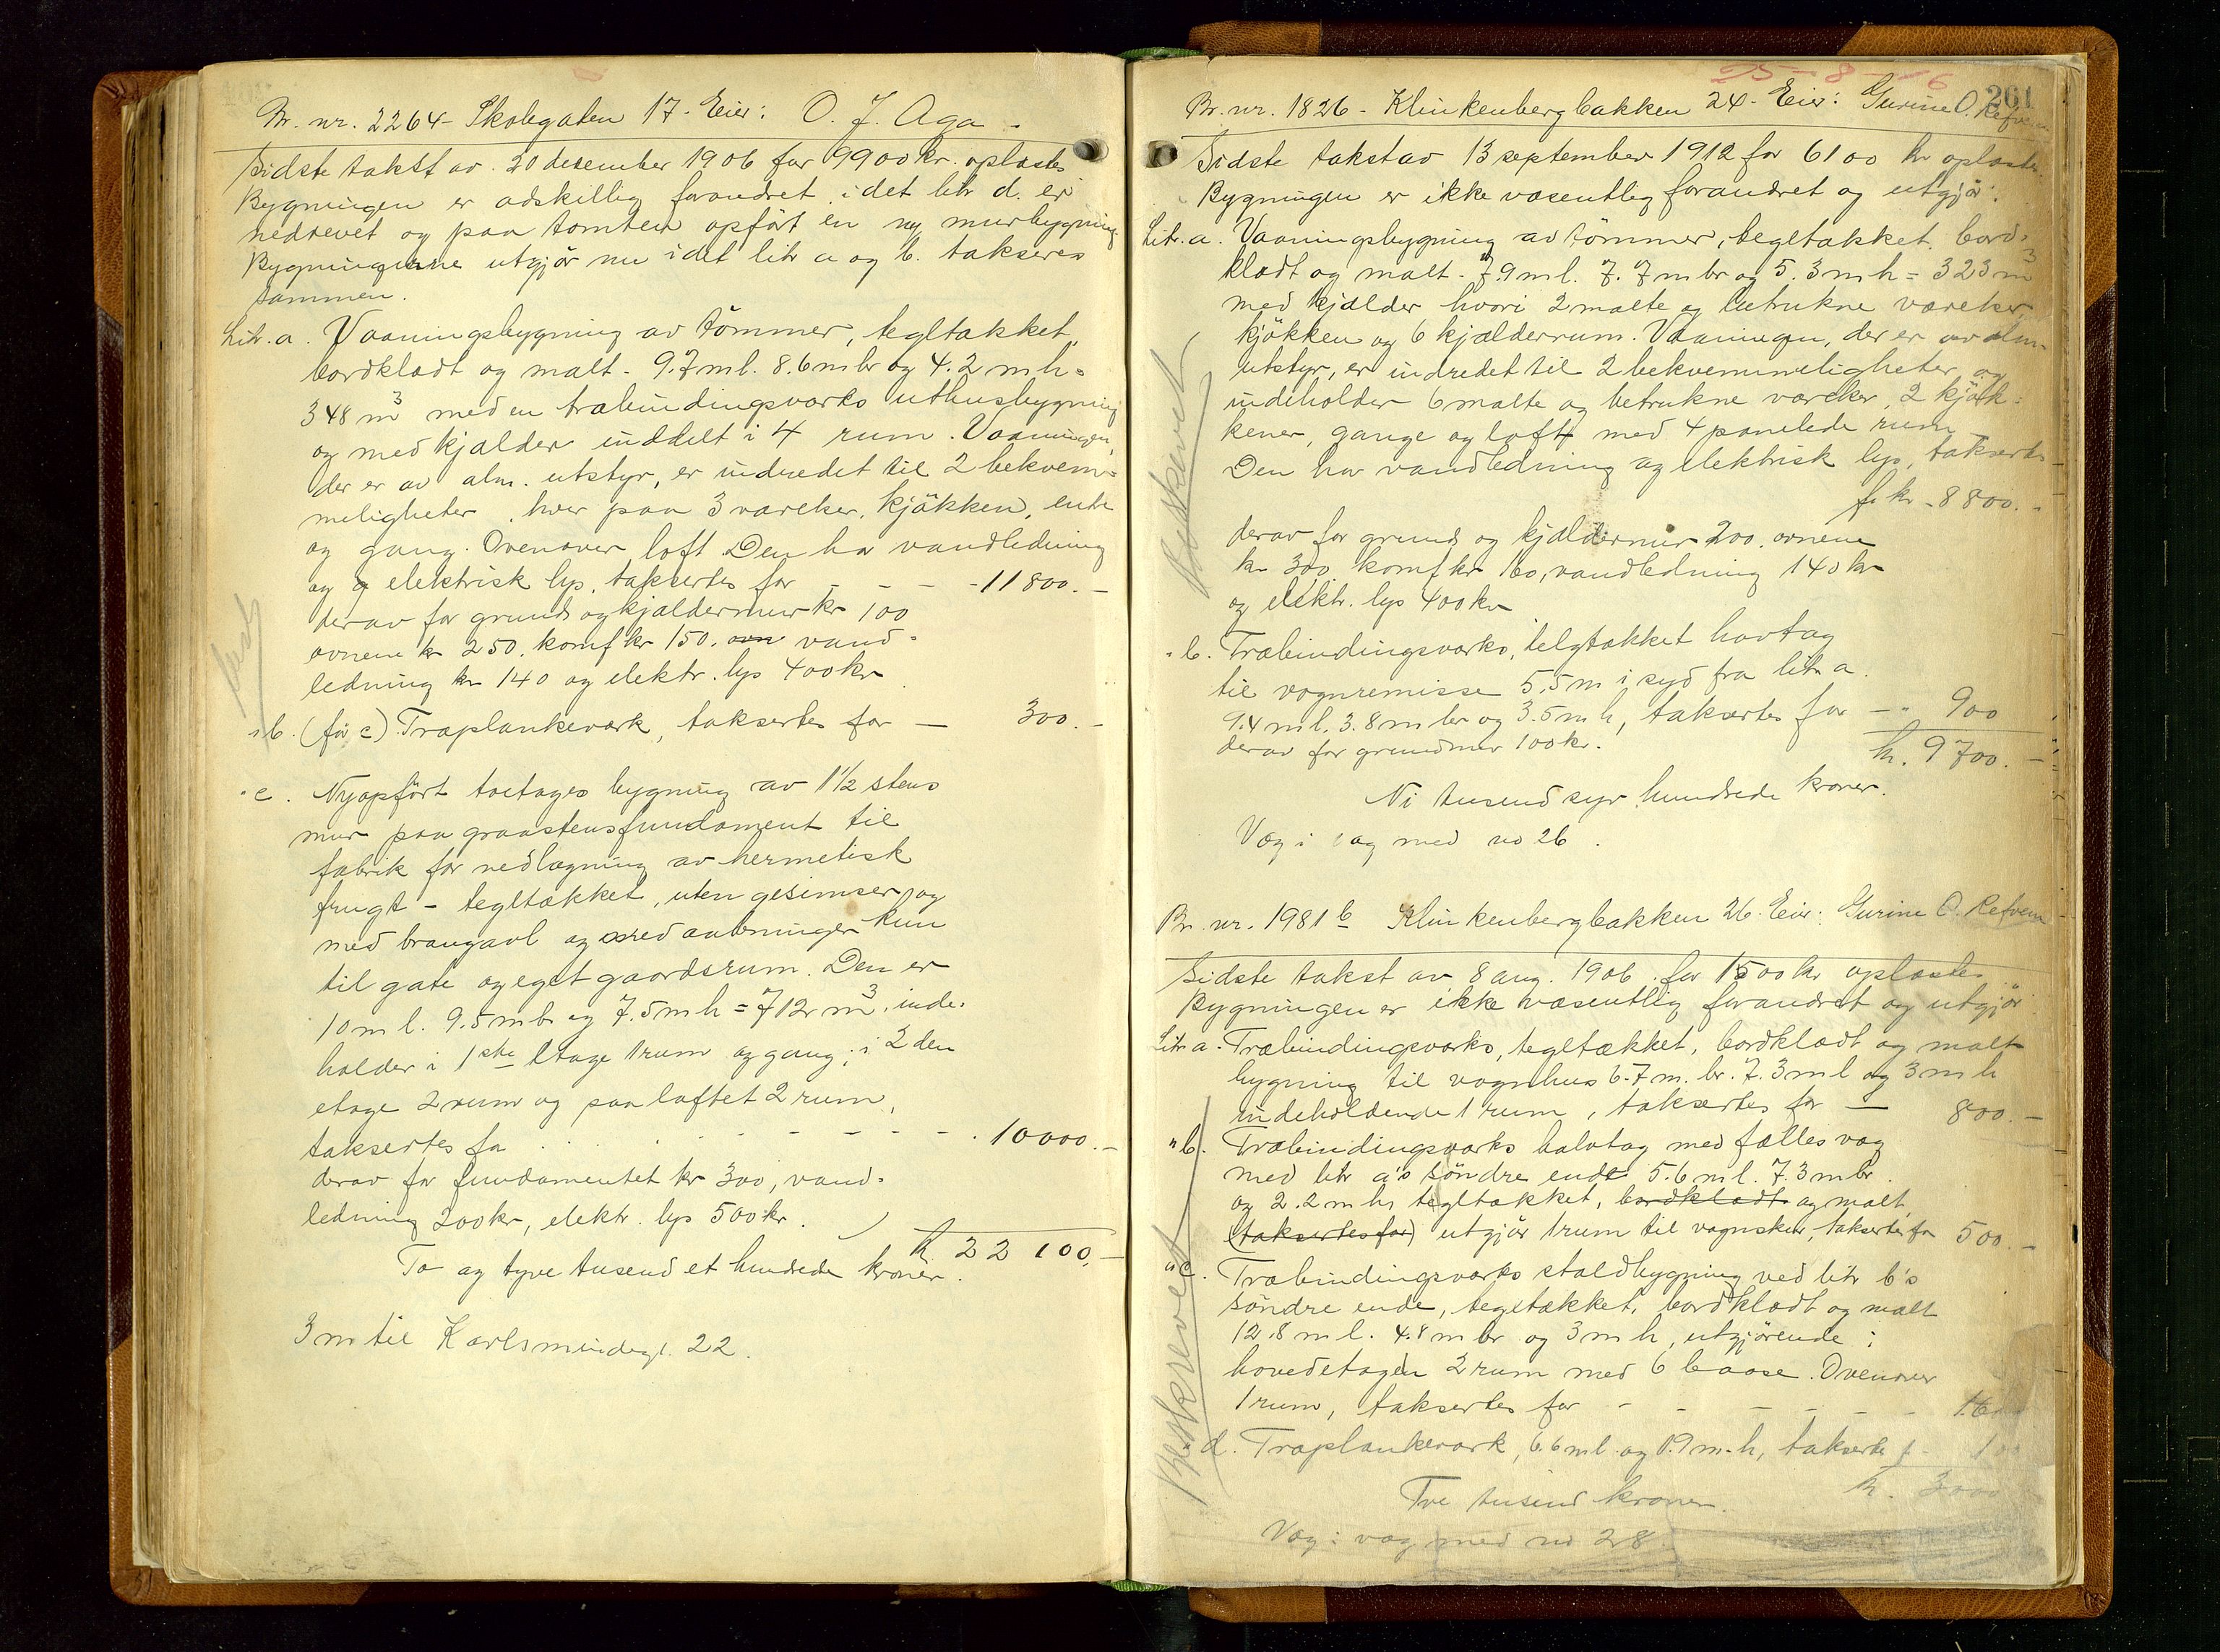 Br. nr. 2264 - Skolegaten 17 - Eier: O. J. Aga -
Sidste takst av 20 desember 1906 for 9900 kr. oplæstes
Bygningen er adskillig forandret, idet litr d. er
nedrevet og paa tomten opført en ny murbygning
Bygningerne utgjør nu idet litr a og b. takseres
sammen.
Litr. a. Vaaningsbygning av tömmer, tegltækket,
bordklædt og malt - 9.7 m l. 8.6 m br og 4.2 m h =
348 m³ med en træbindingsværks uthusbygning
og med kjælder inddelt i 4 rum. Vaaningen,
der er av alm. utstyr, er indredet til 2 bekvem=
meligheter, hver paa 3 værelser, kjökken, entre
og gang. Ovenover loft Den har vandledning
og elektrisk lys, taksertes for - - - - 11800.-
derav for grund og kjældermur kr 100
ovnene kr 250. komf kr 150. ovn vand=
ledning kr 140 og elektr. lys 400 kr
" b. (før c) Træplankeværk, taksertes for — 300.-
" c. Nyopfört toetages bygning av 1½ stens
mur paa graastensfundament til
fabrik for nedlægning av hermetisk
frugt - tegltækket, uten gesimser, og
med brangavl og med aabninger kun
til gate og eget gaardsrum. Den er
10 m l. 9.5 m br og 7.5 m h = 712 m³, inde=
holder i 1ste Etage 1 rum og gang; i 2den
etage 2 rum og paa loftet 2 rum,
taksertes for . . . - - - - - 10000.-
derav for fundamentet kr 300, vand=
ledning 200 kr, elektr. lys 500 kr.
Kr. 22 100.-
To og tyve tusend et hundrede kroner.
3 m til Karlsmindegt. 22.
25-8-16
261
Br. nr. 1826 - Klinkenbergbakken 24 - Eier: Gurine O. Refvem
Sidste takst av 13 september 1912 for 6100 kr oplæstes.
Bygningen er ikke væsentlig forandret og utgjør:
Litr. a. Vaaningsbygning av tömmer, tegltækket, bord=
klædt og malt - 7.9 m l. 7.7 m br og 5.3 m h = 323 m³
med kjælder hvori 2 malte og betrukne værelser,
kjökken og 6 kjælderrum. Vaaningen, der er av alm.
utstyr, er indredet til 2 bekvemmeligheter og
indeholder 6 malte og betrukne værelser, 2 kjök=
kener, gange og loft med 4 panelede rum
Den har vandledning og elektrisk lys, taksertes
for kr - 8800.-
derav for grund og kjældermur 200, ovnene
kr 300, komf kr 160, vandledning 140 kr
og elektr. lys 400 kr
" b. Træbindingsværks, telgtækket havtag
til vognremisse 5,5 m i syd fra litr a.
9.4 m l. 3.8 m br og 3.5 m h, taksertes for — " 900
derav for grundmur 100 kr.
Kr. 9700.-
Ni tusend syv hundrede kroner.
Væg i væg med no 26.
Br. nr. 1981 b Klinkenbergbakken 26. Eier: Gurine O. Refvem
Sidste takst av 8 aug. 1906 for 1500 kr oplæstes
Bygningen er ikke væsentlig forandret og utgjör
Litr a. Træbindingsværks, tegltækket, bordklædt og malt
bygning til vognhus 6.7 m. br. 7.3 m l og 3 m h
indeholdende 1 rum, taksertes for — 800.-
" b. Træbindingsværks halvtag med fælles væg
med litr a's söndre ende 5.6 m l. 7.3 m br.
og 2.2 m h, tegltækket, bordklædt og malt,
(taksertes for) utgjör 1 rum til vognskur, taksertes for 500.-
" c. Træbindingsværks staldbygning ved litr b's
söndre ende, tegltækket, bordklædt og malt
12.8 m l. 4.8 m br og 3 m h, utgjörende i
hovedetagen 2 rum med 6 baase. Ovenover
1 rum, taksertes for - - - - -
d. Træplankeværk, 6.6 m l og 1.9 m h, taksertes f -
Kr. 3000
Tre tusend kroner.
Væg i væg med no 28.
Beskrevet
Beskrevet